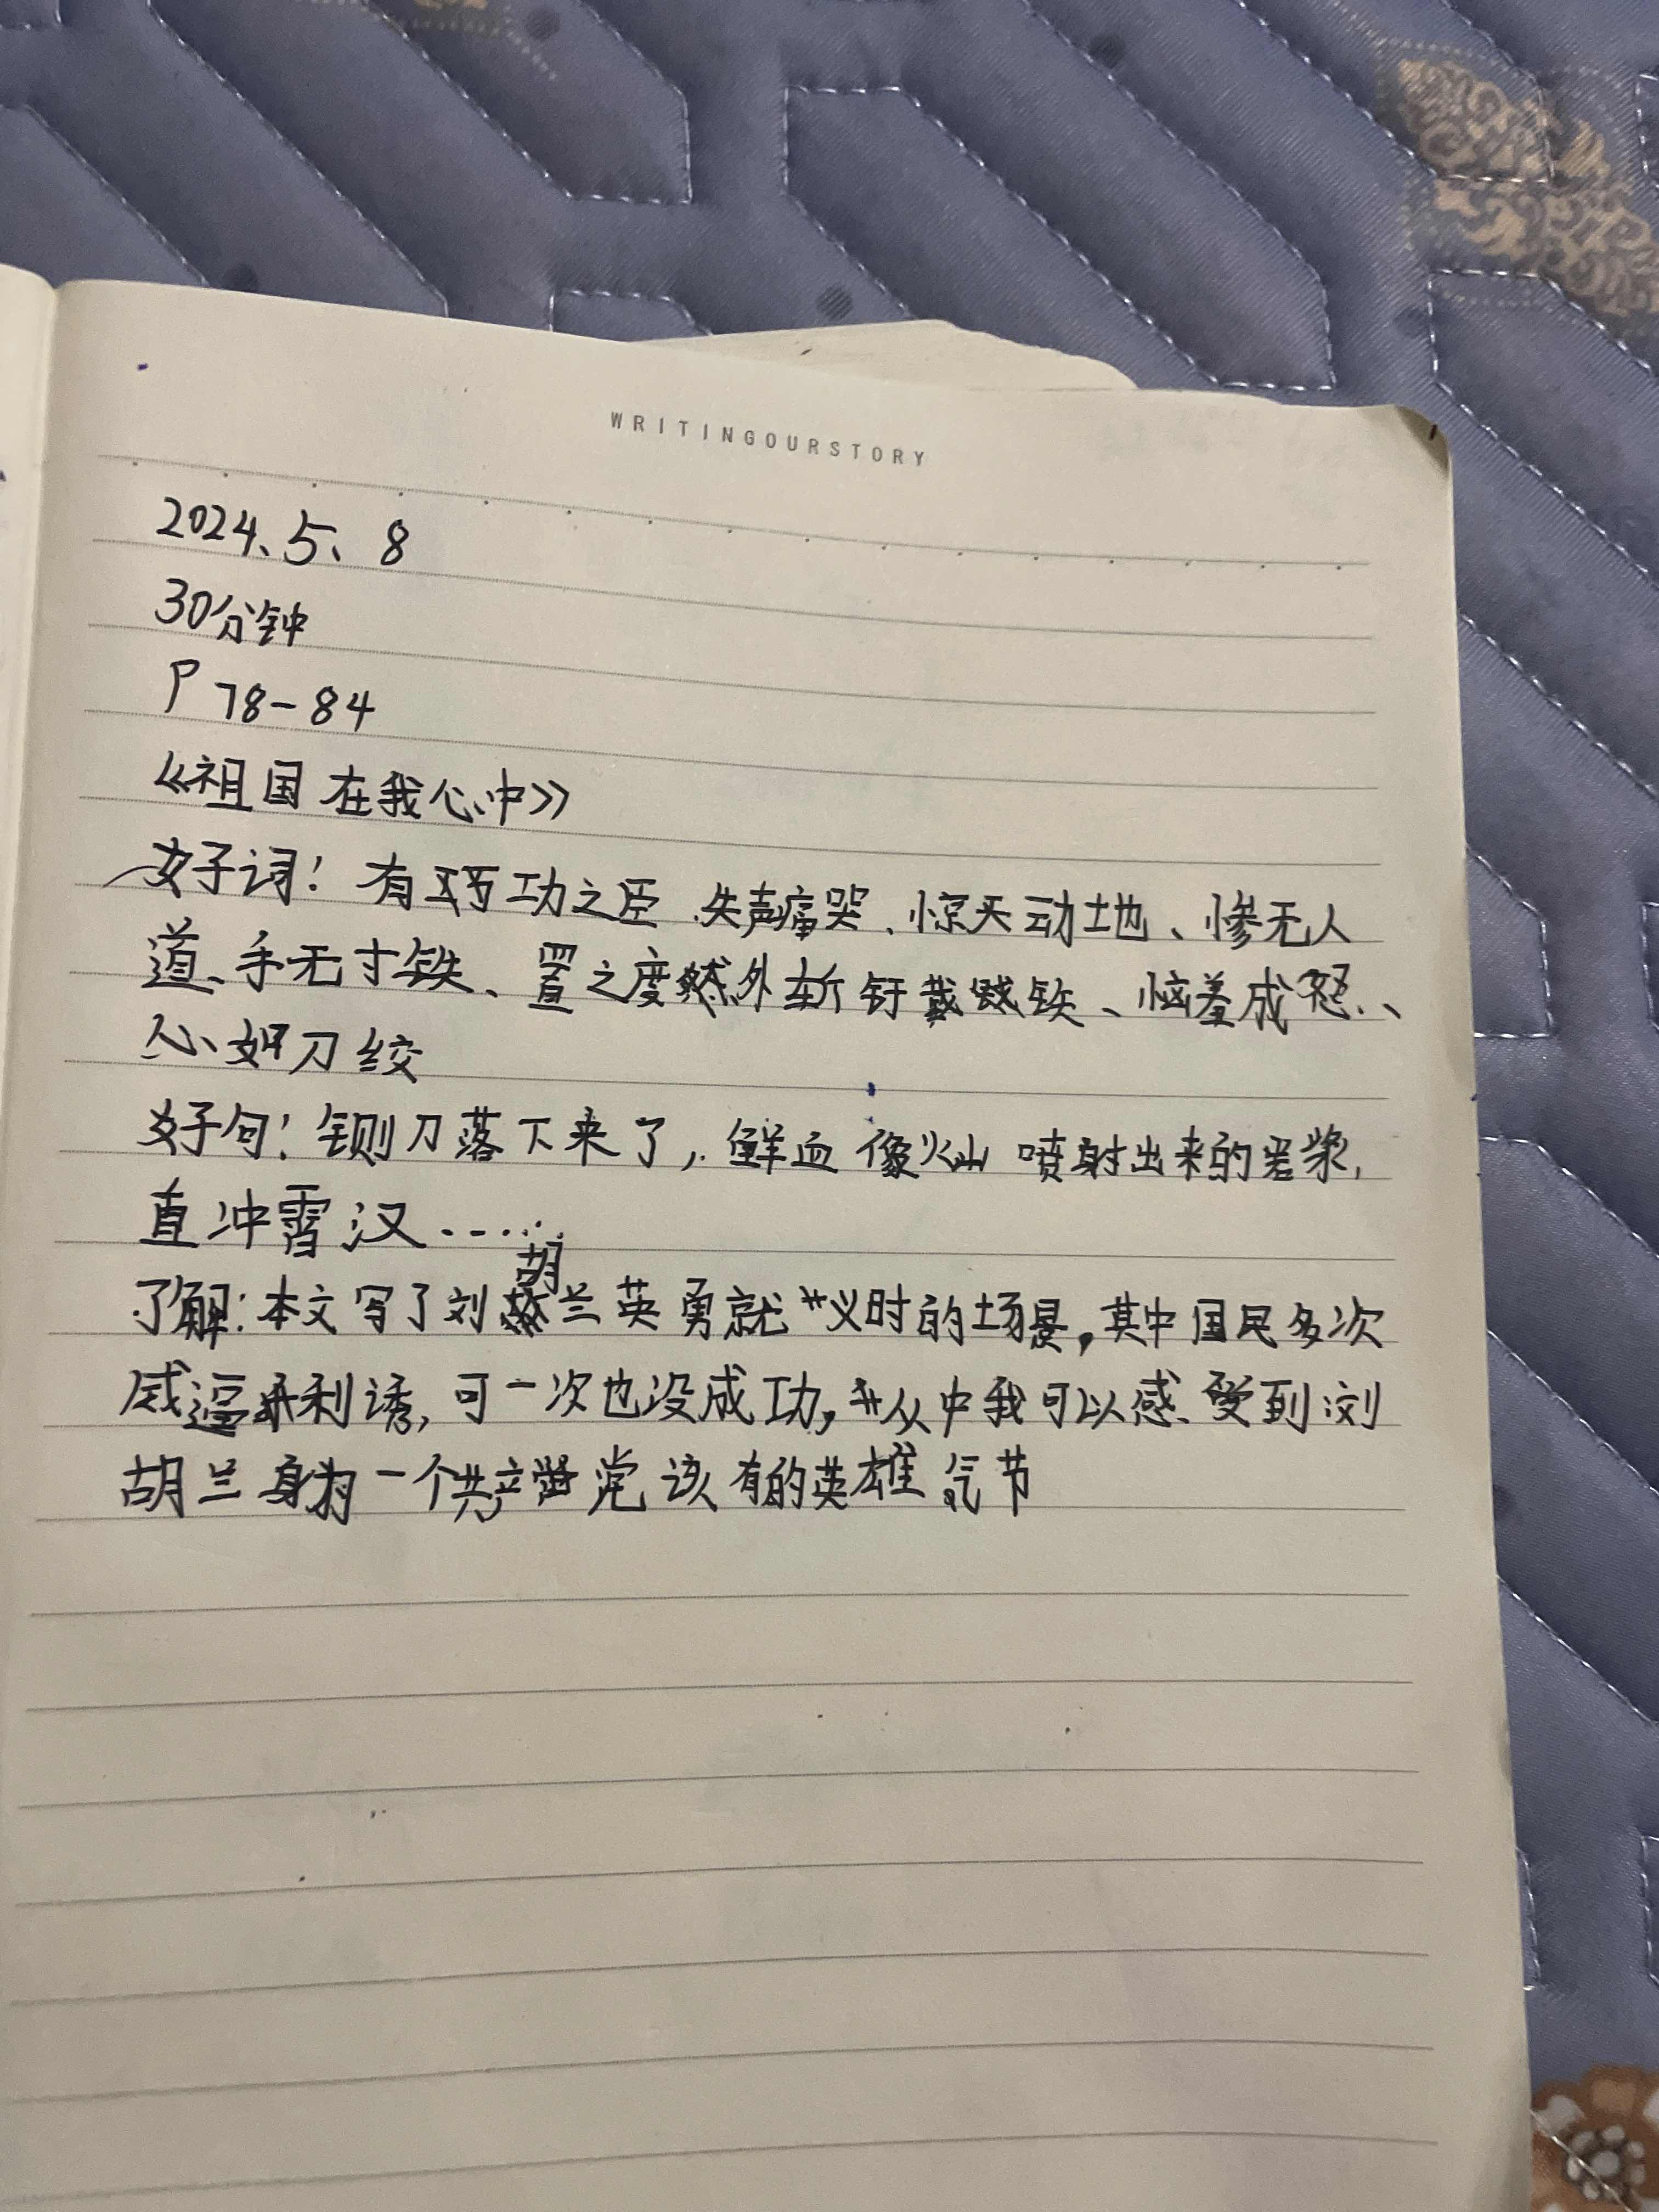 WRITINGOURSTORY
2024、5、8
30分钟
P78-84
《祖国在我心中》
好词：有功之臣、失声痛哭、惊天动地、惨无人
道、手无寸铁、置之度外斩钉截铁、恼羞成怒、
心如刀绞
好句：铡刀落下来了，鲜血像火山喷射出来的岩浆，
直冲霄汉……
胡
了解：本文写了刘兰英勇就义时的场景，其中国民多次
威逼利诱，可一次也没成功，从中我可以感受到浏
胡兰身为一个共产党该有的英雄气节